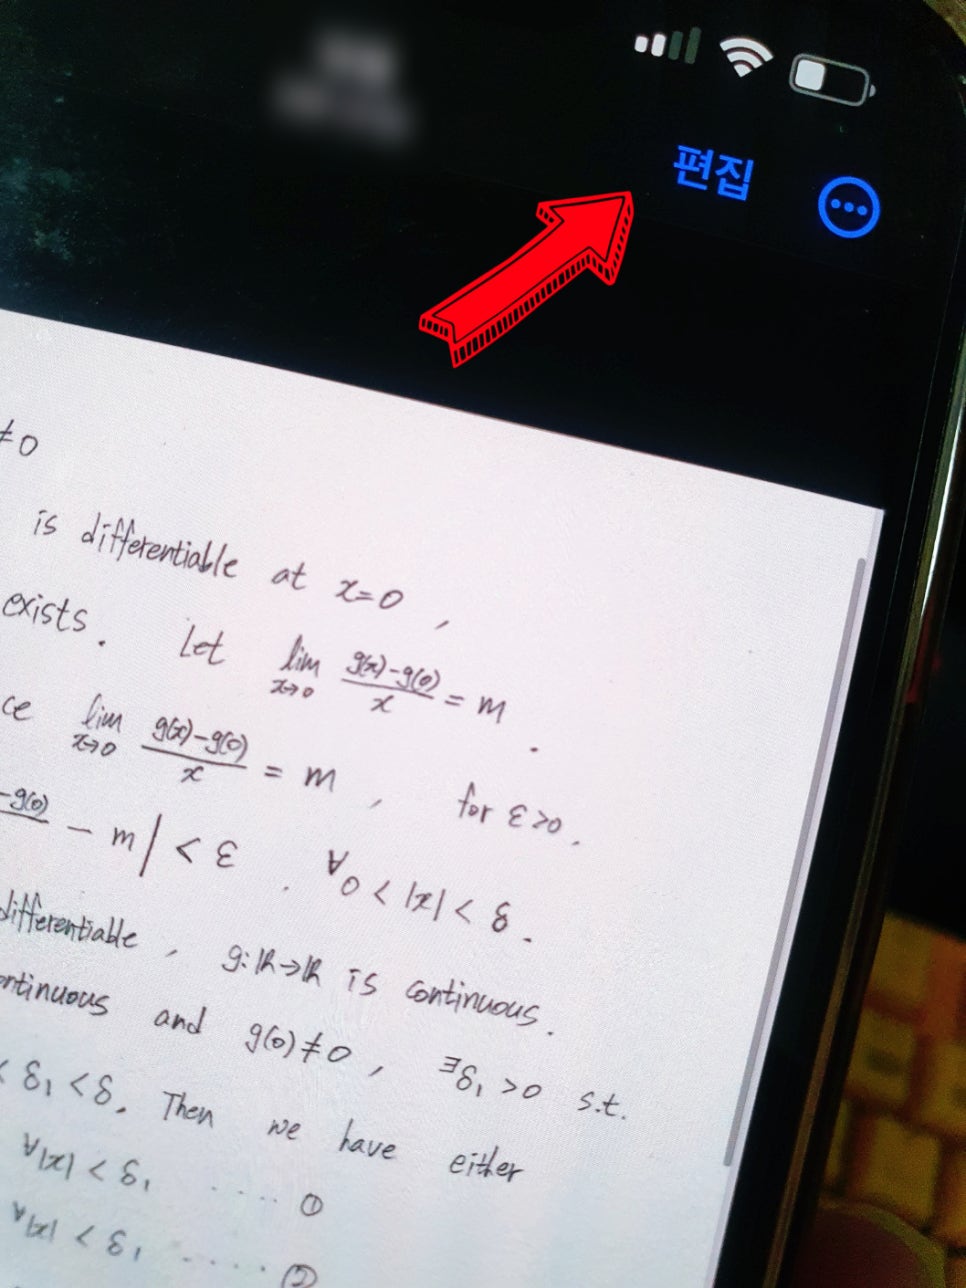 편집
≠0
is differentiable at x=0,
exists. Let lim x→0 g(x)-g(0)/x = m.
ce lim x→0 g(x)-g(0)/x = m, for ε>0,
-g(0) - m| < ε, ∀0<|x|<δ.
differentiable, g:ℝ→ℝ is continuous.
ontinuous and g(0)≠0, ∃δ₁>0 s.t.
< δ₁<δ. Then we have either
∀|x|>δ₁ ..... ①
∀|x|>δ₁ ..... ②